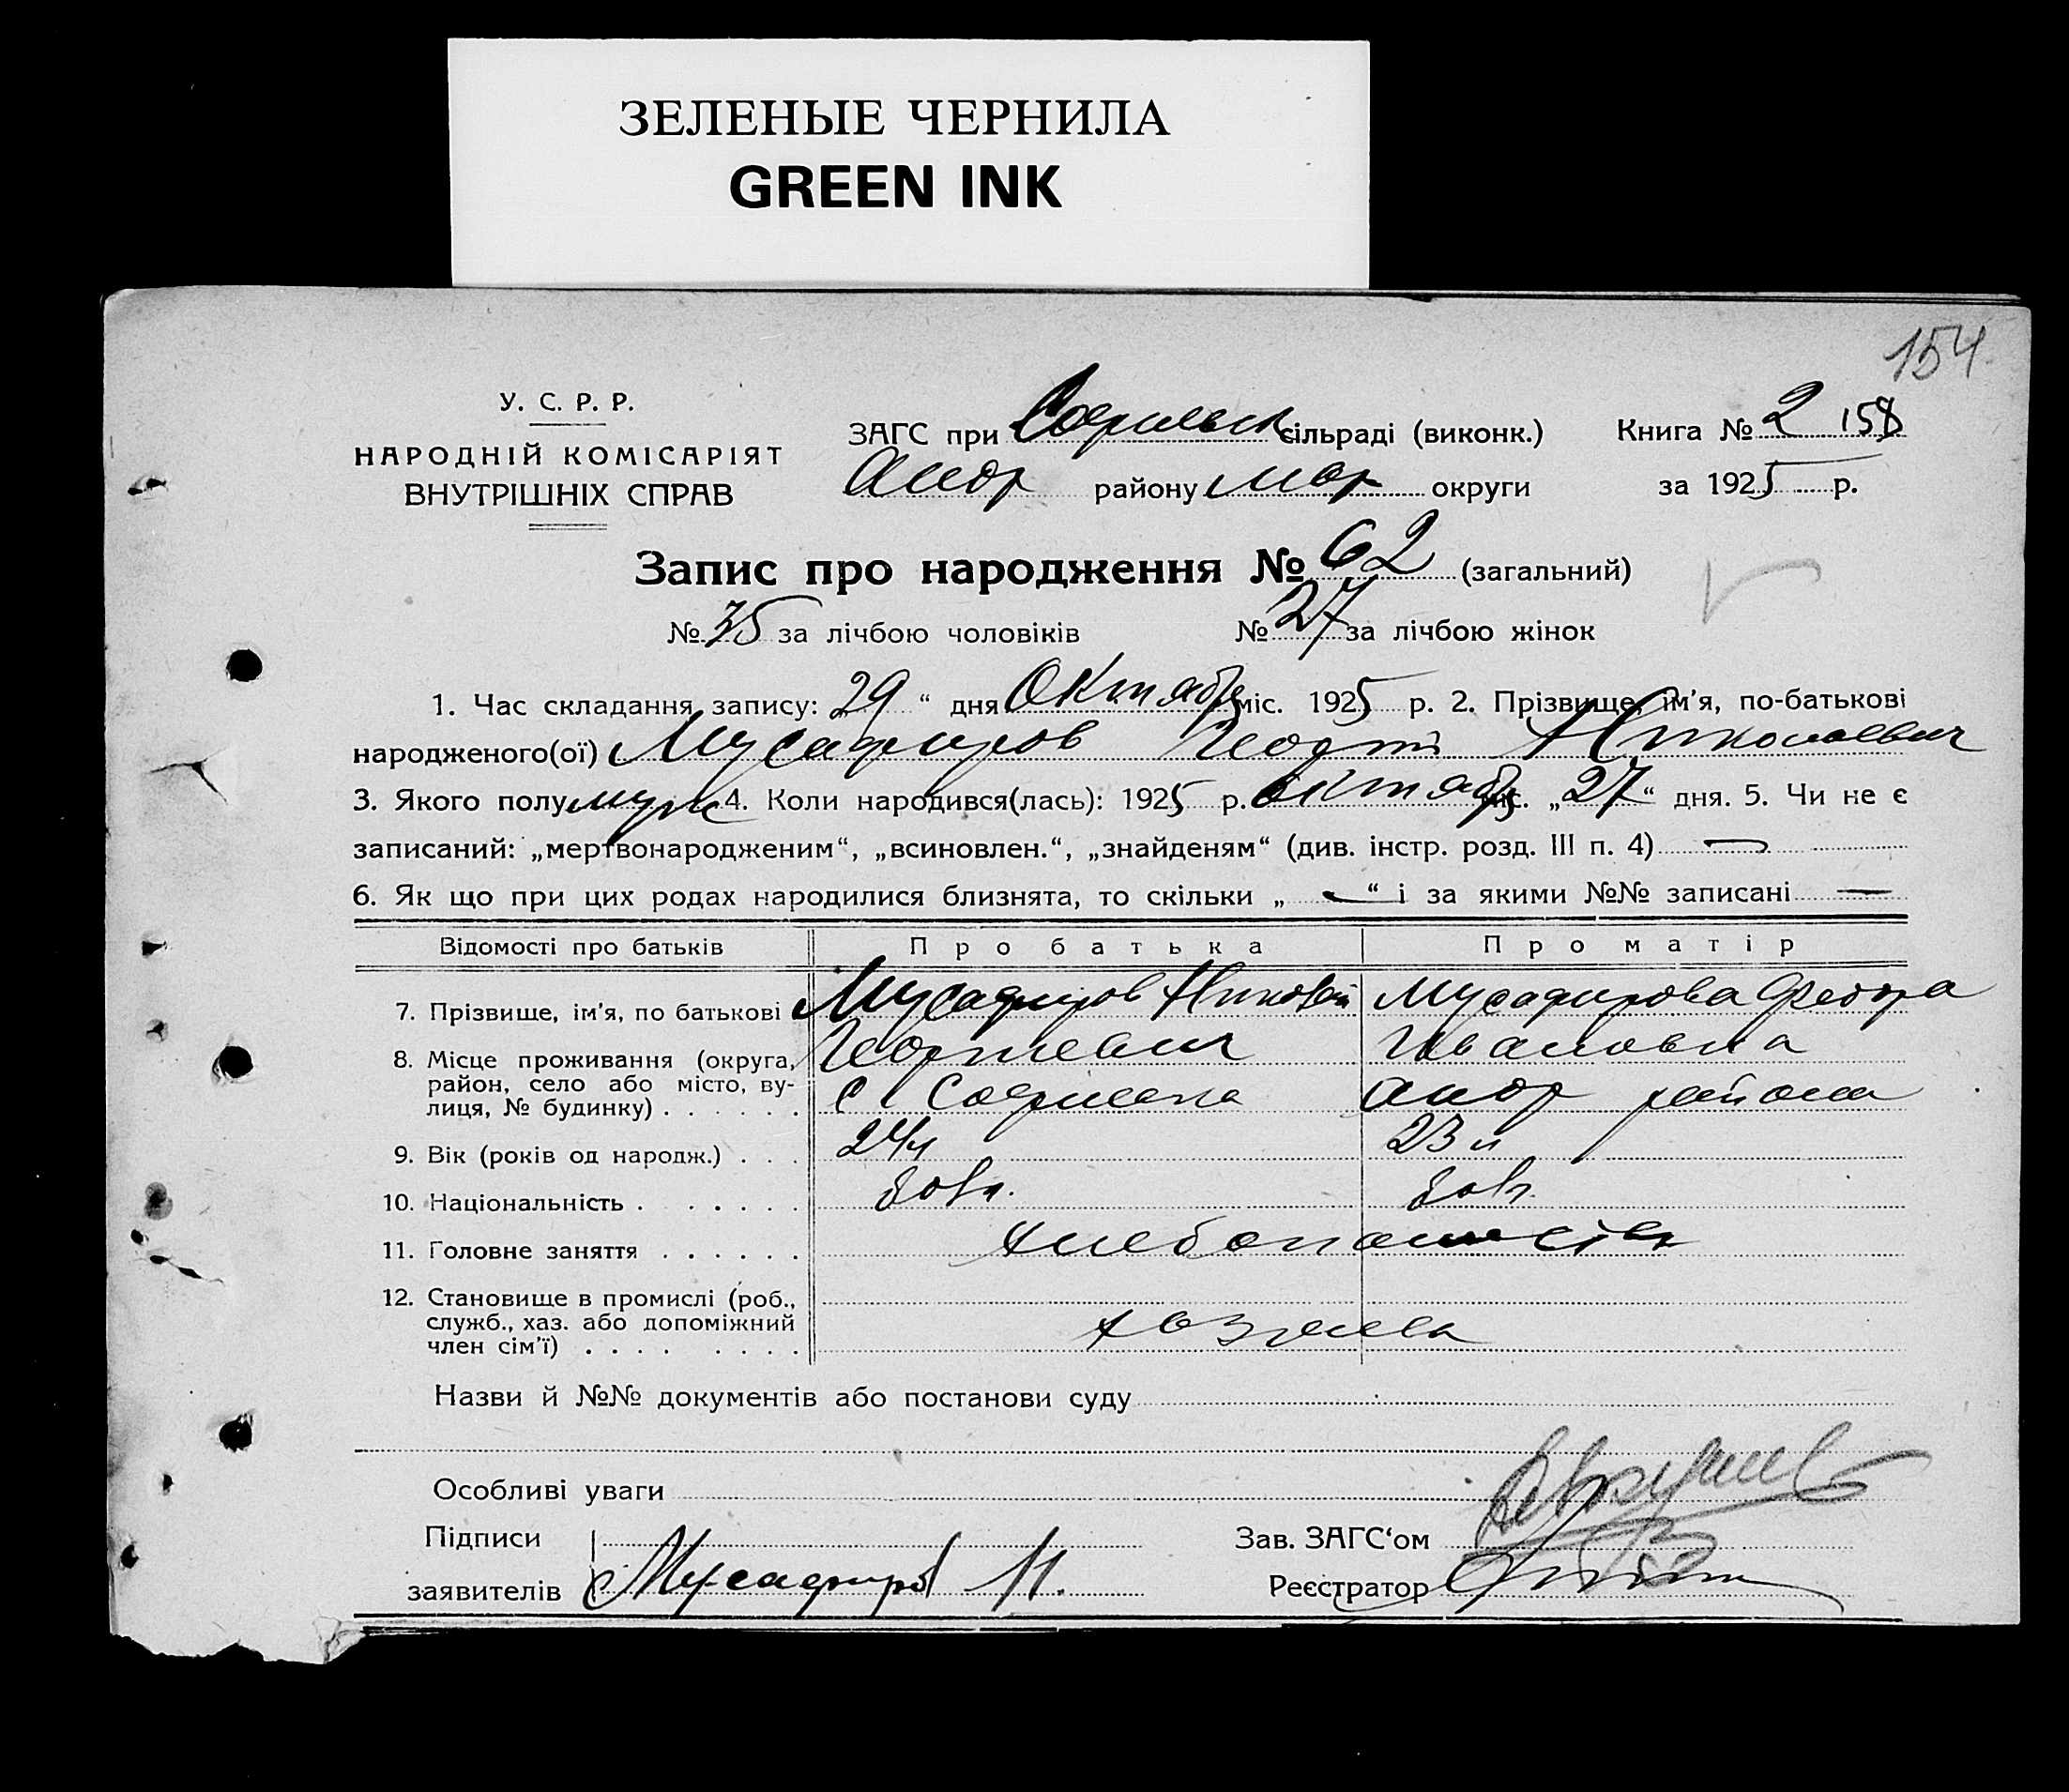 ЗЕЛЕНЫЕ ЧЕРНИЛА
GREEN INK
154
У. С. Р. Р.
НАРОДНІЙ КОМІСАРІЯТ
ВНУТРІШНІХ СПРАВ
ЗАГС при Софиевск сільраді (виконк.)
района району Мар округи
Книга № 2 158
за 1925 р.
Запис про народження № 62 (загальний)
№ 35 за лічбою чоловіків № 27 за лічбою жінок
1. Час складання запису: „29“ дня Октября міс. 1925 р. 2. Прізвище, ім'я, по-батькові
народженого(ої) Мусафиров Николаевич
3. Якого полу муж 4. Коли народився(лась): 1925 р. октября міс. „27“ дня. 5. Чи не є
записаний: „мертвонародженим“, „всиновлен.“, „знайденям“ (див. інстр. розд. III п. 4) —
6. Як що при цих родах народилися близнята, то скільки „—“ і за якими №№ записані —
Відомості про батьків Про батька Про матір
7. Прізвище, ім'я, по батькові Мусафиров Николай Мусафирова Федора
Георгиевич Ивановна
8. Місце проживання (округа, район, село або місто, вулиця, № будинку) . . . . . . с Софиевка района
9. Вік (років од народж.) . . . 24л 23 л
10. Національність . . . . . . болг. болг.
11. Головне заняття . . . . . . хлебопашество
12. Становище в промислі (роб.,
служб., хаз. або допоміжний
член сім'ї) . . . . . . . . хозяева
Назви й №№ документів або постанови суду
Особливі уваги
Підписи
заявителів Мусафиров Н.
Зав. ЗАГС‘ом
Реєстратор